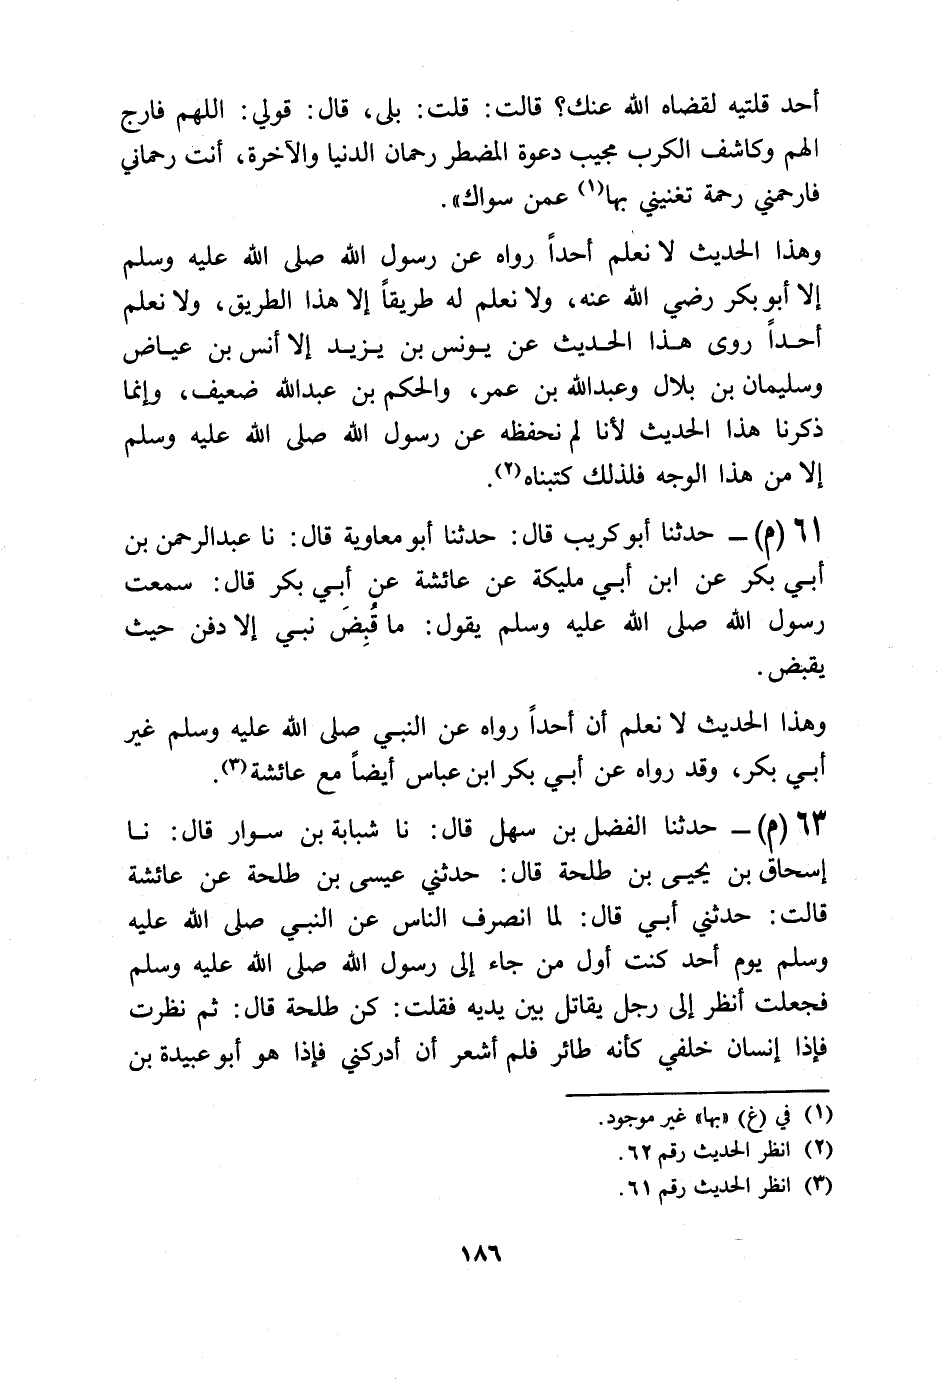 أحد قلتيه لقضاه الله عنك؟ قالت: قلت: بلى، قال: قولي: اللهم فارج
الهم وكاشف الكرب مجيب دعوة المضطر رحمان الدنيا والآخرة، أنت رحماني
فارحمني رحمة تغنيني بها(١) عمن سواك».
وهذا الحديث لا نعلم أحداً رواه عن رسول الله صلى الله عليه وسلم
إلا أبو بكر رضي الله عنه، ولا نعلم له طريقاً إلا هذا الطريق، ولا نعلم
أحداً روى هذا الحديث عن يونس بن يزيد إلا أنس بن عياض
وسليمان بن بلال وعبدالله بن عمر، والحكم بن عبدالله ضعيف، وإنما
ذكرنا هذا الحديث لأنا لم نحفظه عن رسول الله صلى الله عليه وسلم
إلا من هذا الوجه فلذلك كتبناه(٢).
٦١ (م) ـ حدثنا أبو كريب قال: حدثنا أبو معاوية قال: نا عبدالرحمن بن
أبـي بكر عن ابن أبـي مليكة عن عائشة عن أبـي بكر قال: سمعت
رسول الله صلى الله عليه وسلم يقول: ما قُبِضَ نبـي إلا دفن حيث
يقبض.
وهذا الحديث لا نعلم أن أحداً رواه عن النبـي صلى الله عليه وسلم غير
أبـي بكر، وقد رواه عن أبـي بكر ابن عباس أيضاً مع عائشة(٣).
٦٣ (م) ـ حدثنا الفضل بن سهل قال: نا شبابة بن سوار قال: نا
إسحاق بن يحيـى بن طلحة قال: حدثني عيسى بن طلحة عن عائشة
قالت: حدثني أبـي قال: لما انصرف الناس عن النبـي صلى الله عليه
وسلم يوم أحد كنت أول من جاء إلى رسول الله صلى الله عليه وسلم
فجعلت أنظر إلى رجل يقاتل بين يديه فقلت: كن طلحة قال: ثم نظرت
فإذا إنسان خلفي كأنه طائر فلم أشعر أن أدركني فإذا هو أبو عبيدة بن
(١) في (غ) «بها» غير موجود.
(٢) انظر الحديث رقم ٦٢.
(٣) انظر الحديث رقم ٦١.
١٨٦